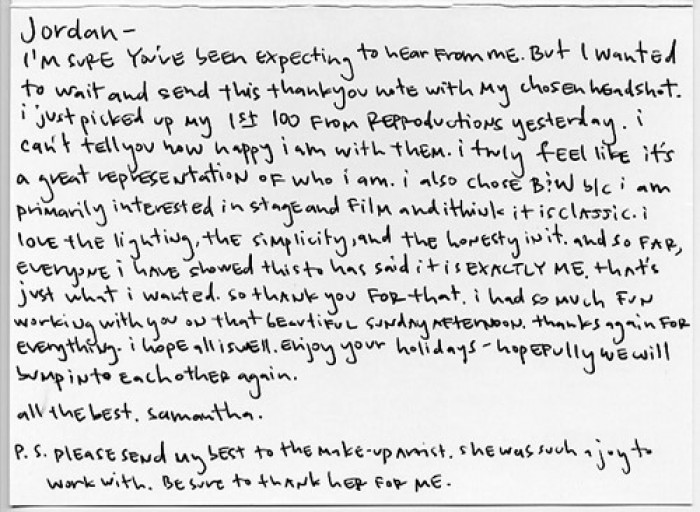 Jordan-
I'm sure you've been expecting to hear from me. But I wanted
to wait and send this thankyou note with my chosen headshot.
i just picked up my 1st 100 from Reproductions yesterday. i
can't tell you how happy i am with them. i truly feel like it's
a great representation of who i am. i also chose B:W b/c i am
primarily interested in stage and film and i think it is classic. i
love the lighting, the simplicity, and the honesty in it. and so far,
everyone i have showed this to has said it is EXACTLY ME. that's
just what i wanted. so thank you for that. i had so much fun
working with you on that beautiful sunday afternoon. thanks again for
everything. i hope all is well. enjoy your holidays - hopefully we will
bump into each other again.
all the best. samantha.
P.S. please send my best to the make-up artist. she was such a joy to
work with. Be sure to thank her for me.